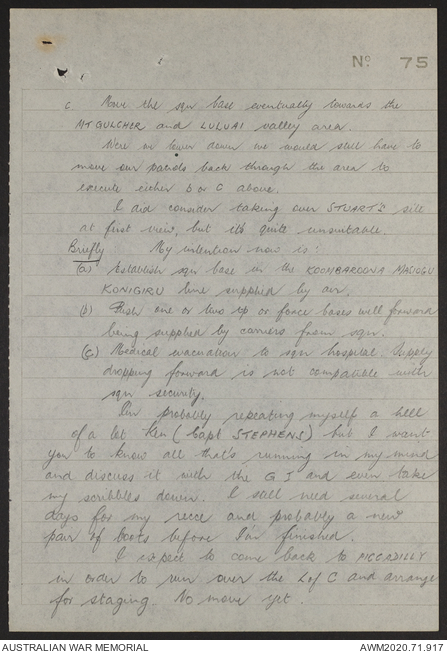 No 75
c. Move the sqn base eventually towards the
MT GULCHER and LULUAI valley area.
Were we lower down we would still have to
move our patrols back through the area to
execute either b or c above.
I did consider taking over STUART's site
at first view, but it's quite unsuitable.
Briefly My intention now is:
(a) Establish sqn base in the KOOMBAROONA MASIOGU
KONIGIRU line supplied by air.
(b) Push one or two tp or force bases well forward
being supplied by carriers from sqn.
(c) Medical evacuation to sqn hospital. Supply
dropping forward is not compatible with
sqn security.
I'm probably repeating myself a hell
of a lot Ken (Capt STEPHENS) but I want
you to know all that's running in my mind
and discuss it with the G I and even take
my scribbles down. I still need several
days for my recce and probably a new
pair of boots before I'm finished.
I expect to come back to PICCADILLY
in order to run over the L of C and arrange
for staging. No move yet.
AUSTRALIAN WAR MEMORIAL
AWM2020.71.917